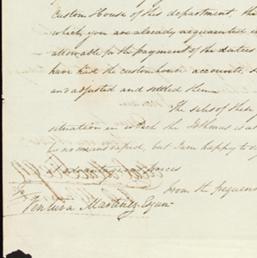 Custom House of this department, the
which you are already acquainted
allowable for the payment of the duties
have had the customhouse accounts,
and adjusted and settled them
The sales of these
situation in which the Isthmus is at
is no mean sped, but I am happy to
from the frequen
Ventura Martinez Esqre